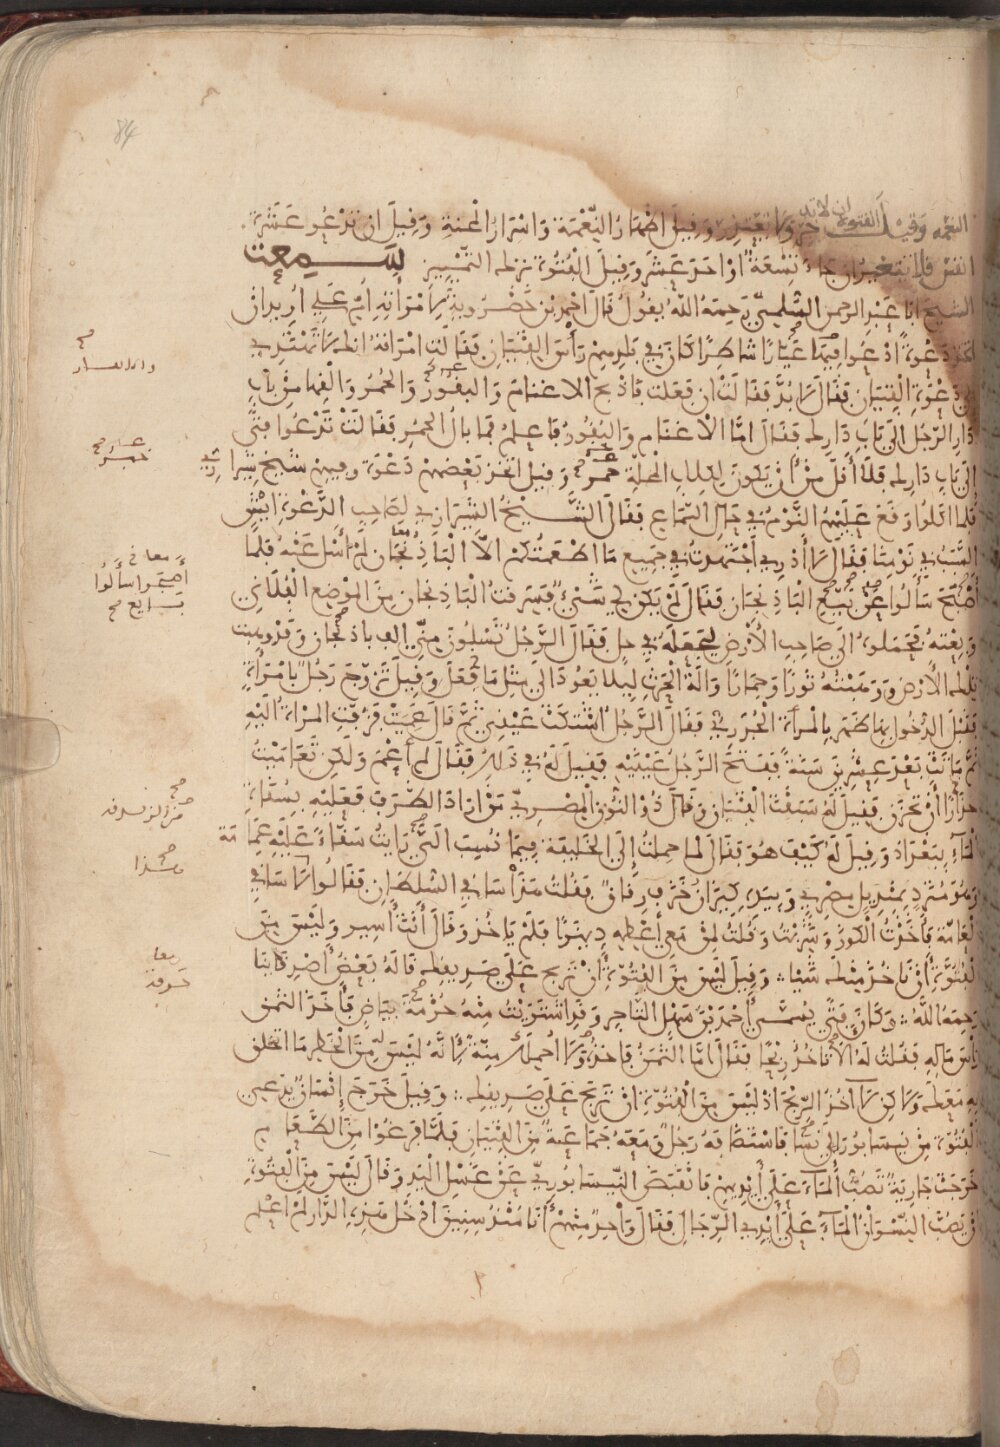 84
النعمه وقيل الفتوة ان لا تدخر ولا تعتذر وقيل اظهار النعمة واسرار المحنة وقيل ان تدعو عشرة
انفس فلا تتغير ان جاء تسعة او احد عشر وقيل الفتوة ترك التمييز سمعت
الشيخ ابا عبد الرحمن السلمي رحمه الله يقول قال احمد بن خضرويه لامراته ام علي اريد ان
اتخذ دعوة ادعوا فيها عيارا شاطرا كان في بلدهم راس الفتيان فقالت امراته انك لا تهتدي
الى دعوة الفتيان فقال لا بد فقالت ان فعلت فاذبح الاغنام والبقور والحمر والقها من باب
دار الرجل الى باب دارك فقال اما الاغنام والبقور فاعلم فما بال الحمر فقالت تدعوا فتى
الى باب دارك فلا اقل من ان يكون لكلاب المحلة خير وقيل اتخذ بعضهم دعوة وفيهم شيخ شيرازي
فلما اكلوا وقع عليهم النوم في حال السماع فقال الشيخ الشيرازي لصاحب الدعوة ايش
السبب في نومنا فقال لا ادري اجتهدت في جميع ما اطعمتكم الا الباذنجان لم اسل عنه فلما
اصبح سالوا عن بيع الباذنجان فقال لم يكن لي شيء فسرقت الباذنجان من الموضع الفلاني
وبعته فحملوه الى صاحب الارض ليجعله في حل فقال الرجل تسلون مني الف باذنجان وقد وهبت
تلك الارض ووهبته ثورا وحمارا والة الحرث ليلا يعود الى مثل ما فعل وقيل تزوج رجل بامراة
فقبل الدخول بها ظهر بالمراة الجدري فقال الرجل اشتكت عيني ثم قال عميت فزفت المراة اليه
ثم ماتت بعد عشرين سنة ففتح الرجل عينيه فقيل له في ذلك فقال لم اعم ولكن تعاميت
حذارا ان تحزن فقيل له سبقت الفتيان وقال ذو النون المصري من اراد الظرف فعليه بسقاة
الماء ببغداد وقيل له كيف هو فقال لما حملت الى الخليفة فيما نسبت الي رايت سقاء عليه عمامة
وهو مترد بمنديل مصري وبيده كيزان خزف رقاق فقلت هذا ساقي السلطان فقالوا لا ساقي
العامة فاخذت الكوز وشربت وقلت لمن معي اعطه دينارا فلم ياخذ وقال انت اسير وليس من
الفتوة ان ناخذ منك شيئا وقيل ليس من الفتوة ان تربح على صديقك قاله بعض اصدقائنا
رحمه الله وكان فتى يسمى احمد بن سهل التاجر وقد اشتريت منه خرقة بياض فاخذ الثمن
راس ماله فقلت له الا تاخذ ربحا فقال اما الثمن فاخذه ولا احملك منة لانه ليس من الخطر ما اتخلق
به معك ولاكن لا اخذ الربح اذ ليس من الفتوة ان تربح على صديقك وقيل خرج انسان يدعي
الفتوة من نيسابور الى نسا فاستضافه رجل ومعه جماعة من الفتيان فلما فرغوا من الطعام
خرجت جارية تصب الماء على ايديهم فانقبض النيسابوري عن غسل اليد وقال ليس من الفتوة
ان يصب النسوان الماء على ايدي الرجال فقال واحد منهم انا منذ سنين ادخل هذه الدار لم اعلم